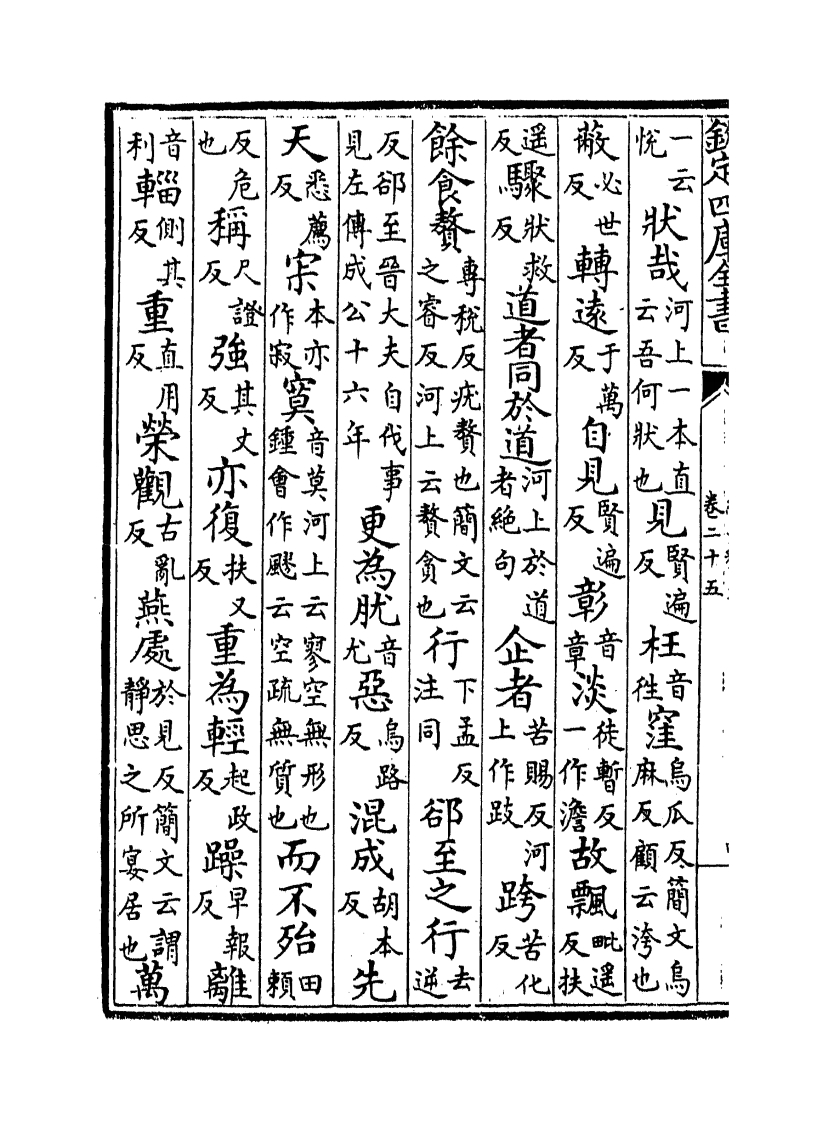 欽定四庫全書 卷二十五
一云悅狀哉河上一本直云吾何狀也見賢遍反枉音徃窪烏瓜反簡文烏麻反顧云洿也
蔽必世反轉遠于萬反自見賢遍反彰音章淡徒暫反一作澹故飄毗遥反扶
遥反驟狀救反道者同於道河上於道者絶句企者苦賜反河上作跂跨苦化反
餘食贅專稅反疣贅也簡文云之睿反河上云贅貪也行下孟反注同郤至之行去逆
反郤至晉大夫自伐事見左傳成公十六年更為肬音尤惡烏路反混成胡本反先
天悉薦反宗本亦作寂寞音莫河上云寥空無形也鍾會作飂云空疏無質也而不殆田賴
反危也稱尺證反強其丈反亦復扶又反重為輕起政反躁早報反離
音利輜側其反重直用反榮觀古亂反燕處於見反簡文云謂靜思之所宴居也萬